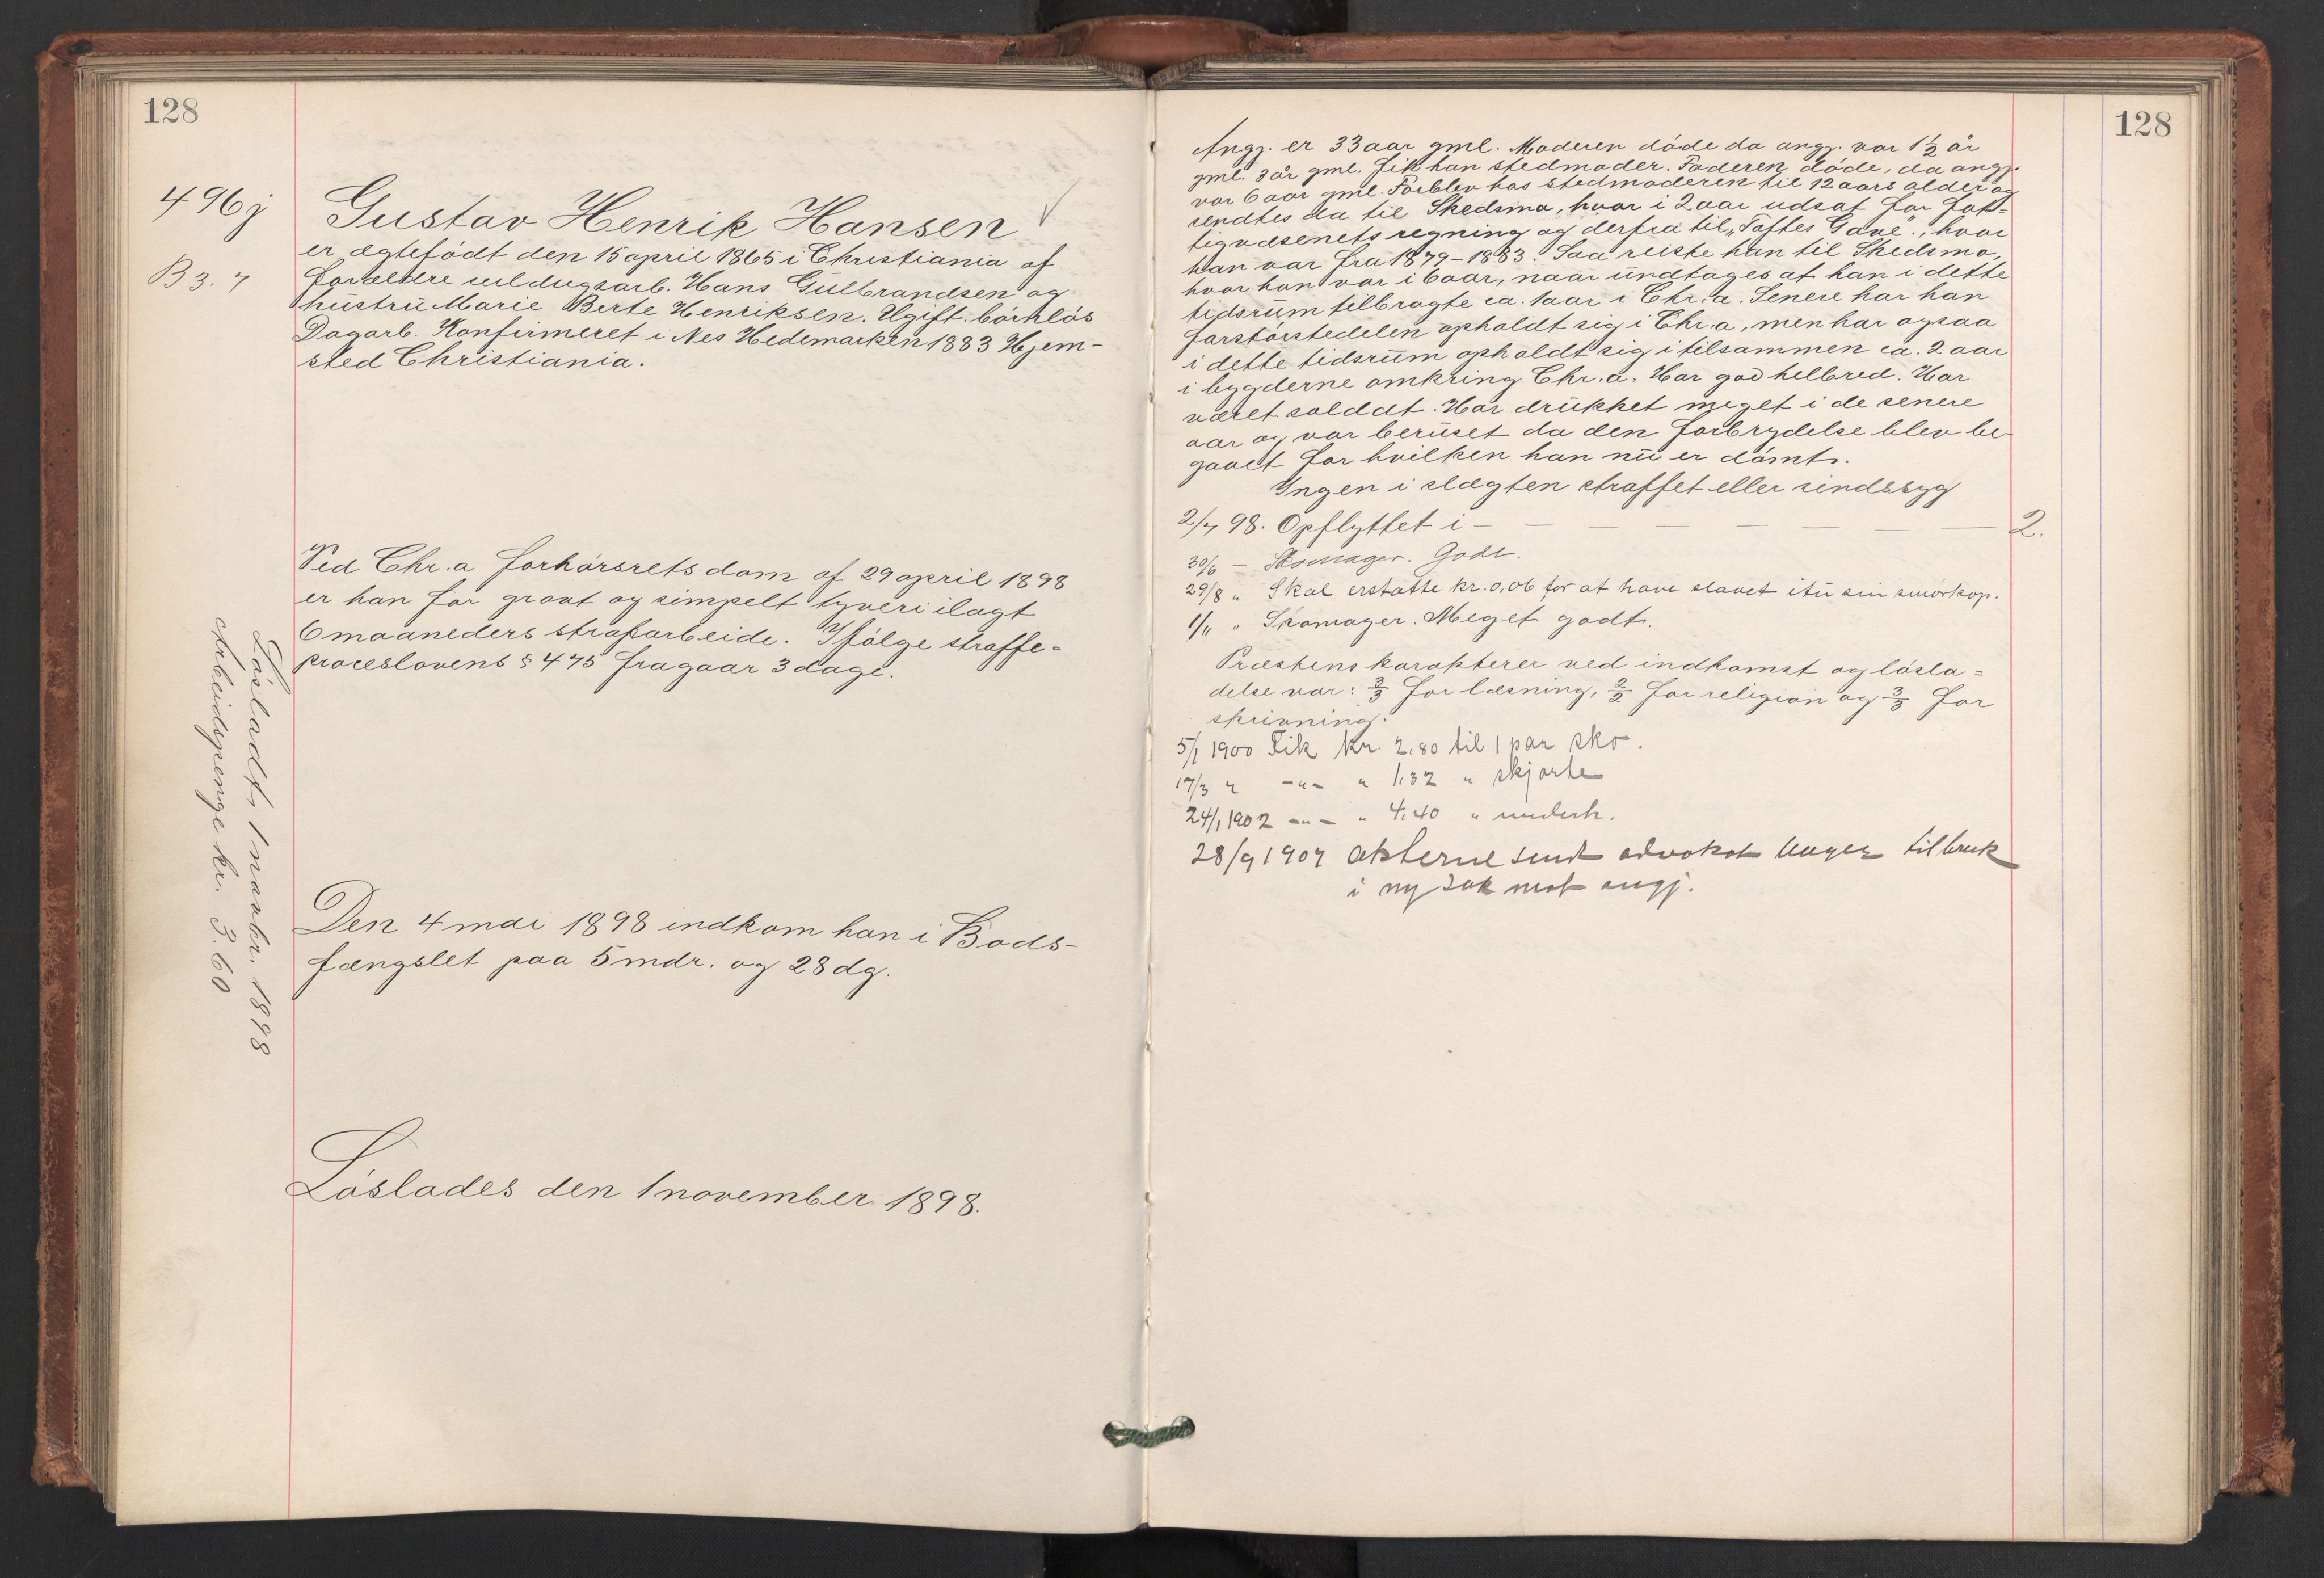 128
496j
B 3. 7
Gustav Henrik Hansen
er ægtefödt den 15 april 1865 i Christiania af
forældre uldugsarb. Hans Gulbrandsen og
hustru Marie Berte Henriksen. Ugift. börnlös
Dagarb. Konfirmeret i Nes Hedemarken 1883 Hjem-
sted Christiania.
Ved Chr.a forhörsrets dom af 29 april 1898
er han for grovt og simpelt tyveri ilagt
6 maaneders strafarbeide. Ifölge straffe-
proceslovens § 475 fragaar 3 dage.
Lösladt 1 novbr. 1898
Arbeidspenge kr. 3.60
Den 4 mai 1898 indkom han i Bods-
fængslet paa 5 mdr. og 28 dg.
Löslades den 1 november 1898.
128
Angj. er 33 aar gml. Moderen döde da angj. var 1½ år
gml. 3 år gml. fik han stedmoder. Faderen döde, da angj.
var 6 aar gml. Forblev hos stedmoderen til 12 aars alder og
sendtes da til Skedsmo, hvor i 2 aar udsat for fat=
tigvæsenets regning og derfra til „Toftes Gave", hvor
han var fra 1879-1883. Saa reiste han til Skedsmo,
hvor han var i 6 aar, naar undtages at han i dette
tidsrum tilbragte ca. 1 aar i Chr.a. Senere har han
forstörstedelen opholdt sig i Chr.a, men har ogsaa
i dette tidsrum opholdt sig i tilsammen ca. 2 aar
i bygderne omkring Chr.a. Har god helbred. Har
været soldat. Har drukket meget i de senere
aar og var beruset da den forbrydelse blev be-
gaaet for hvilken han nu er dömt.
Ingen i slægten straffet eller sindssyg
2/7 98. Opflyttet i — — — — — — 2.
30/6 — Skomager. Godt.
29/8 „ Skal erstatte kr. 0,06 for at have slaaet itu sin smörkop.
1/11 „ Skomager. Meget godt.
Præstens karakterer ved indkomst og lösla=
delse var: 3/3 for læsning, 2/2 for religion og 3/3 for
skrivning.
5/1 1900 Fik kr. 2,80 til 1 par sko.
17/3 „ -„- „ 1,32 „ skjorte
24/1 1902 -„- „ 4,40 „ undert.
28/9 1907 akterne sendt advokat Unger til bruk
i ny sak mot angj.